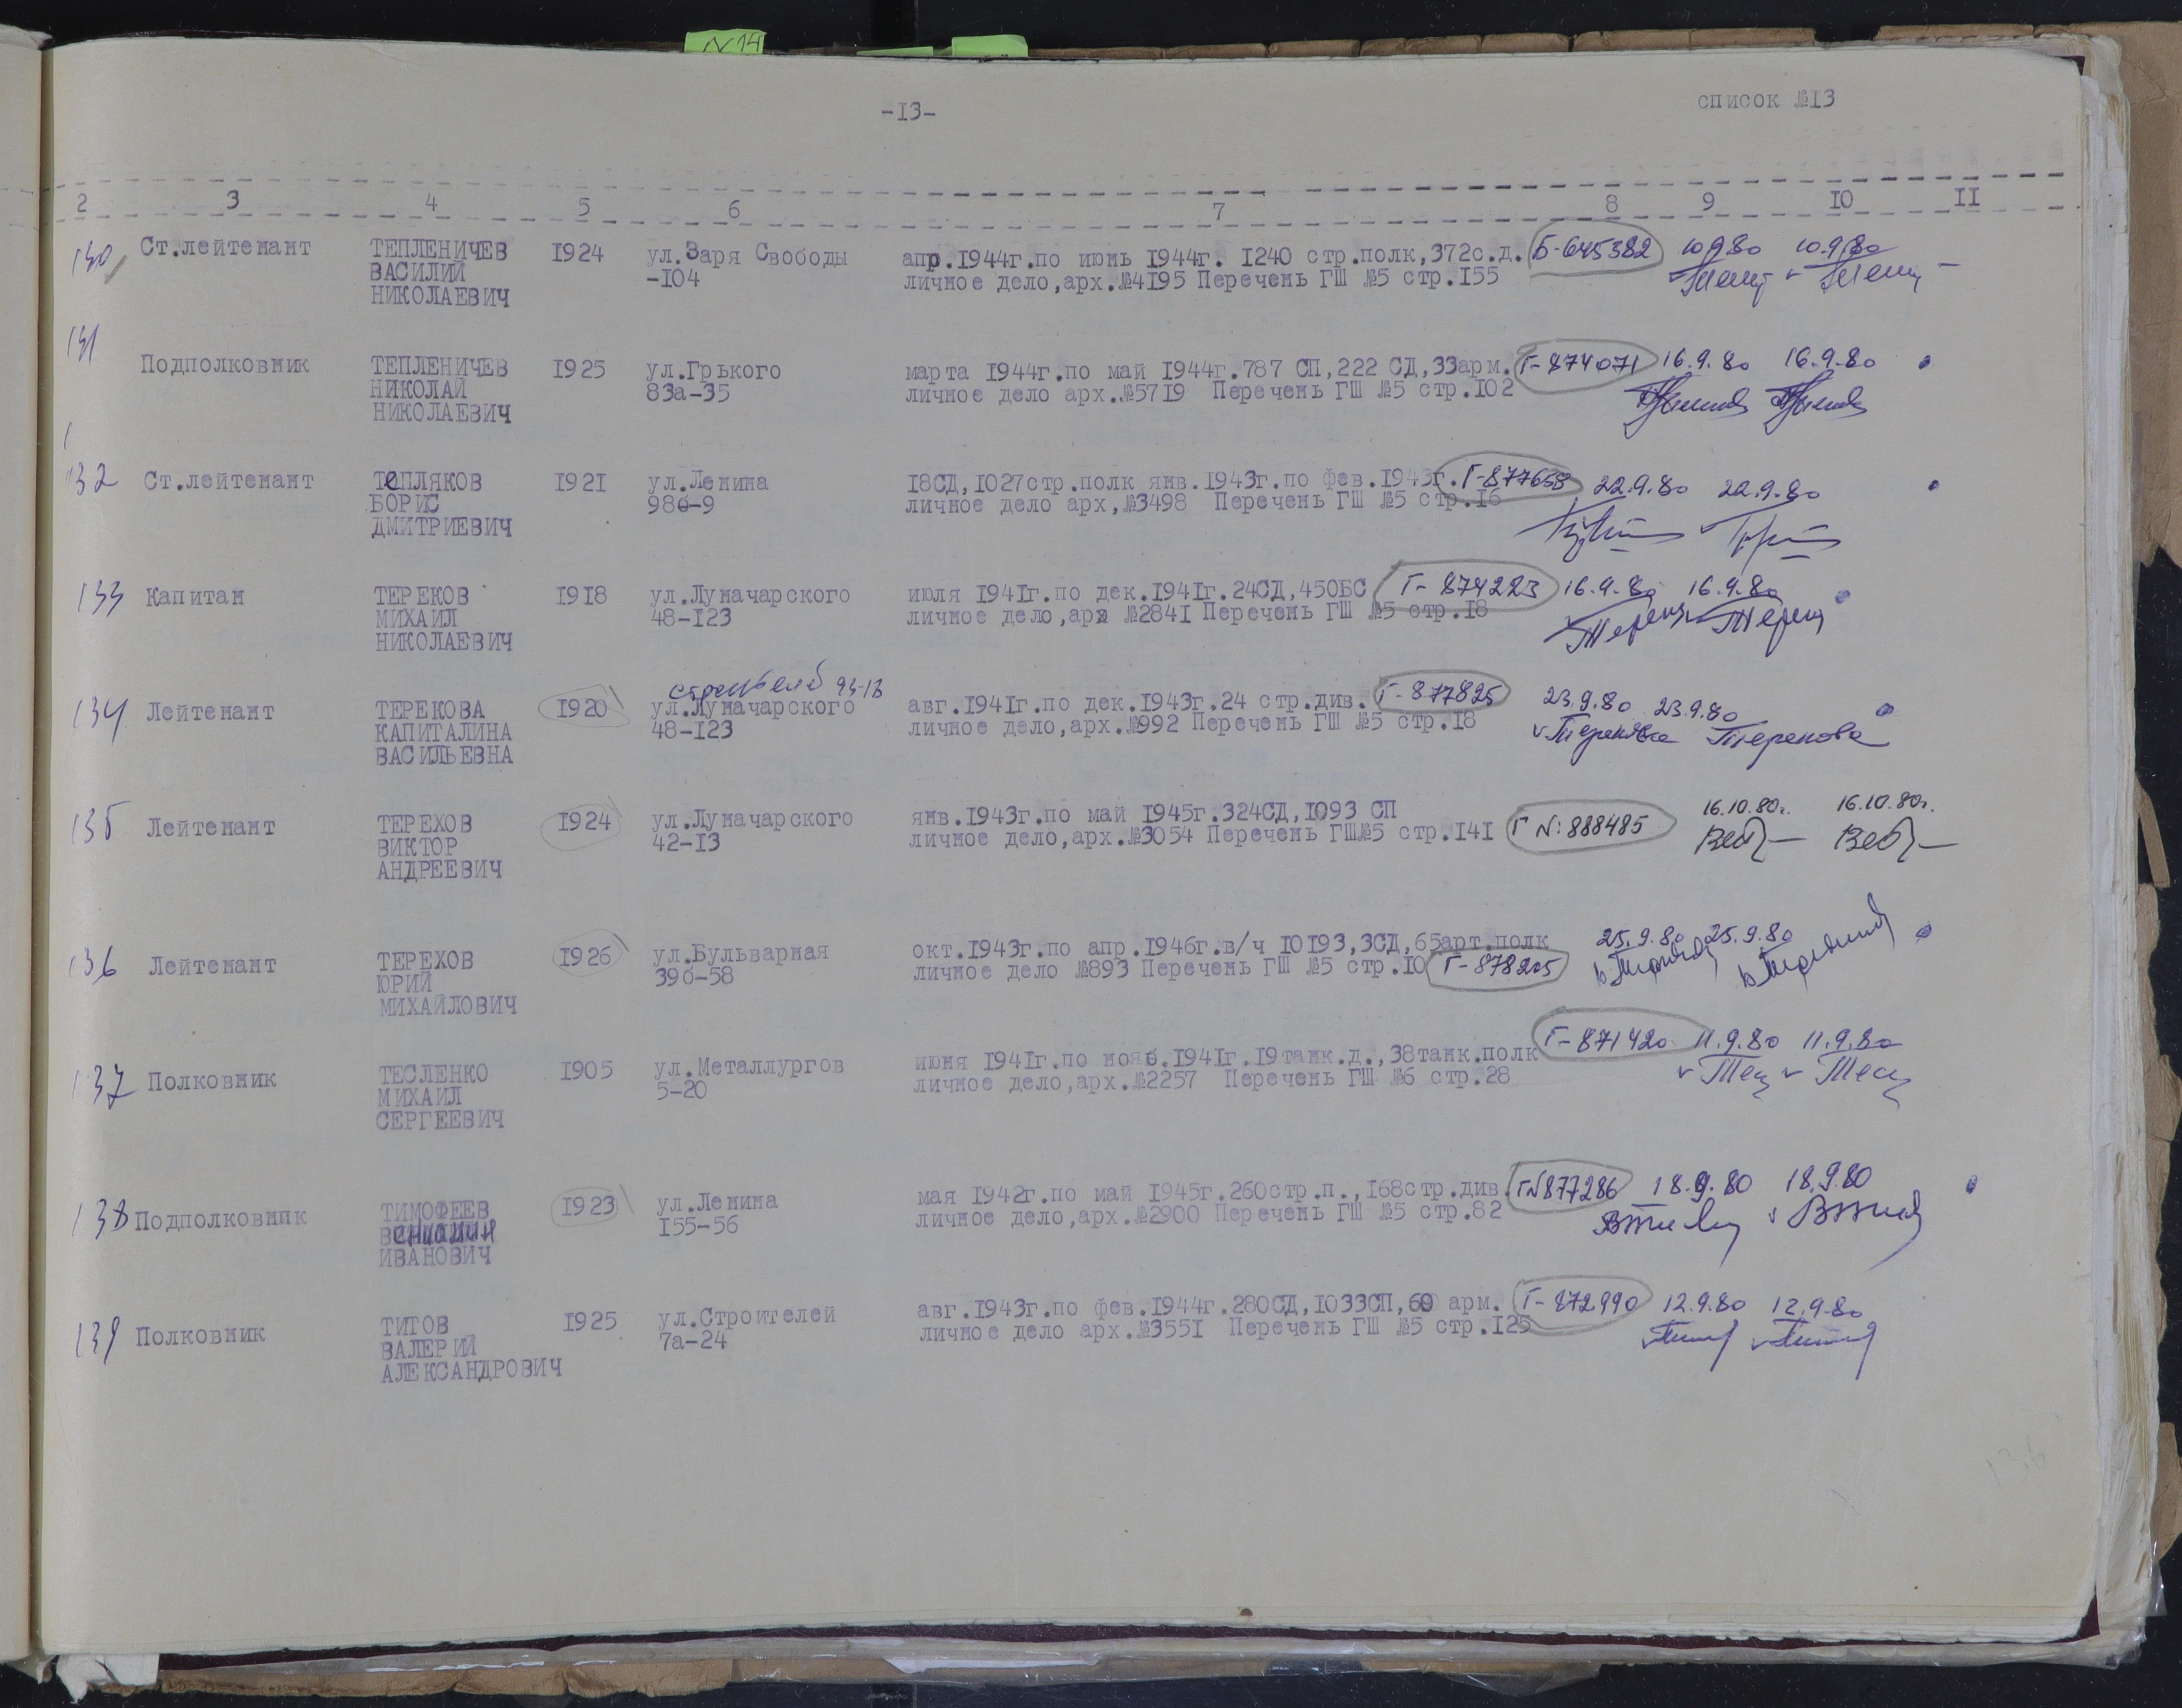 N14
-13-
список №13
2 3 4 5 6 7 8 9 10 11
130 Ст.лейтенант ТЕПЛЕНИЧЕВ 1924 ул.Заря Свободы апр.1944г.по июнь 1944г. 1240 стр.полк,372с.д. Б-645382 10.9.80 10.9.80
ВАСИЛИЙ -104 личное дело,арх.№4195 Перечень ГШ №5 стр.155
НИКОЛАЕВИЧ
131 Подполковник ТЕПЛЕНИЧЕВ 1925 ул.Грького марта 1944г.по май 1944г.787 СП,222 СД,33арм. Г-874071 16.9.80 16.9.80
НИКОЛАЙ 83а-35 личное дело арх.№5719 Перечень ГШ №5 стр.102
НИКОЛАЕВИЧ
132 Ст.лейтенант ТеПЛЯКОВ 1921 ул.Ленина 18СД,1027стр.полк янв.1943г.по фев.1943г. Г-877658 22.9.80 22.9.80
БОРИС 98б-9 личное дело арх,№3498 Перечень ГШ №5 стр.16
ДМИТРИЕВИЧ
133 Капитан ТЕРЕКОВ 1918 ул.Луначарского июля 1941г.по дек.1941г.24СД,450БС Г-874223 16.9.80 16.9.80
МИХАИЛ 48-123 личное дело,арх №2841 Перечень ГШ №5 стр.18
НИКОЛАЕВИЧ
строителей 94-18
134 Лейтенант ТЕРЕКОВА 1920 ул.Луначарского авг.1941г.по дек.1943г.24 стр.див. Г-877825 23.9.80 23.9.80
КАПИТАЛИНА 48-123 личное дело,арх.№992 Перечень ГШ №5 стр.18 Терекова Терекова
ВАСИЛЬЕВНА
135 Лейтенант ТЕРЕХОВ 1924 ул.Луначарского янв.1943г.по май 1945г.324СД,1093 СП Г N:888485 16.10.80г. 16.10.80г.
ВИКТОР 42-13 личное дело,арх.№3054 Перечень ГШ№5 стр.141
АНДРЕЕВИЧ
136 Лейтенант ТЕРЕХОВ 1926 ул.Бульварная окт.1943г.по апр.1946г.в/ч 10193,3СД,65арт.полк 25.9.80 25.9.80
ЮРИЙ 39б-58 личное дело №893 Перечень ГШ №5 стр.10 Г-878205
МИХАЙЛОВИЧ
137 Полковник ТЕСЛЕНКО 1905 ул.Металлургов июня 1941г.по нояб.1941г.19танк.д.,38танк.полк Г-871420 11.9.80 11.9.80
МИХАИЛ 5-20 личное дело,арх.№2257 Перечень ГШ №6 стр.28
СЕРГЕЕВИЧ
138 Подполковник ТИМОФЕЕВ 1923 ул.Ленина мая 1942г.по май 1945г.260стр.п.,168стр.див. ГN877286 18.9.80 18.9.80
Вениамин 155-56 личное дело,арх.№2900 Перечень ГШ №5 стр.82
ИВАНОВИЧ
139 Полковник ТИТОВ 1925 ул.Строителей авг.1943г.по фев.1944г.280СД,1033СП,60 арм. Г-872990 12.9.80 12.9.80
ВАЛЕРИЙ 7а-24 личное дело арх.№3551 Перечень ГШ №5 стр.125
АЛЕКСАНДРОВИЧ
136